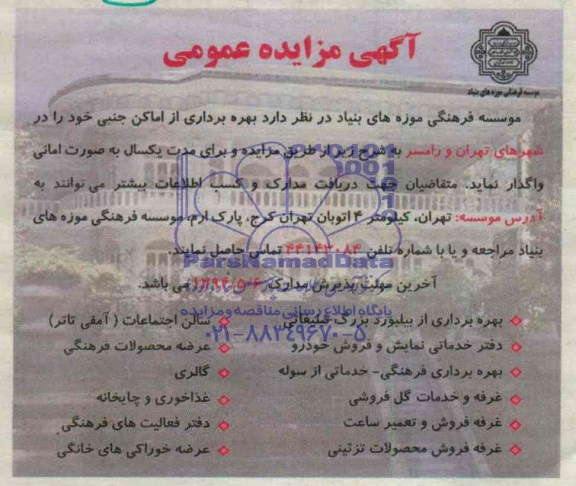 آگهی مزایده عمومی
موسسه فرهنگی موزه های بنیاد
موسسه فرهنگی موزه های بنیاد در نظر دارد بهره برداری از اماکن جنبی خود را در
شهرهای تهران و رامسر به شرح زیر از طریق مزایده و برای مدت یکسال به صورت امانی
واگذار نماید. متقاضیان جهت دریافت مدارک و کسب اطلاعات بیشتر می توانند به
آدرس موسسه: تهران، کیلومتر ۴ اتوبان تهران کرج، پارک ارم، موسسه فرهنگی موزه های
بنیاد مراجعه و یا با شماره تلفن ۴۴۱۴۳۰۸۴ تماس حاصل نمایند.
ParsNamadData
آخرین مهلت پذیرش مدارک ۱۳۹۴/۵/۶ می باشد.
پایگاه اطلاع رسانی مناقصه و مزایده
۰۲۱-۸۸۳۴۹۶۷۰-۵
بهره برداری از بیلبورد بزرگ تبلیغاتی
دفتر خدماتی نمایش و فروش خودرو
بهره برداری فرهنگی- خدماتی از سوله
غرفه و خدمات گل فروشی
غرفه فروش و تعمیر ساعت
غرفه فروش محصولات تزئینی
سالن اجتماعات ( آمفی تاتر)
عرضه محصولات فرهنگی
گالری
غذاخوری و چایخانه
دفتر فعالیت های فرهنگی
عرضه خوراکی های خانگی